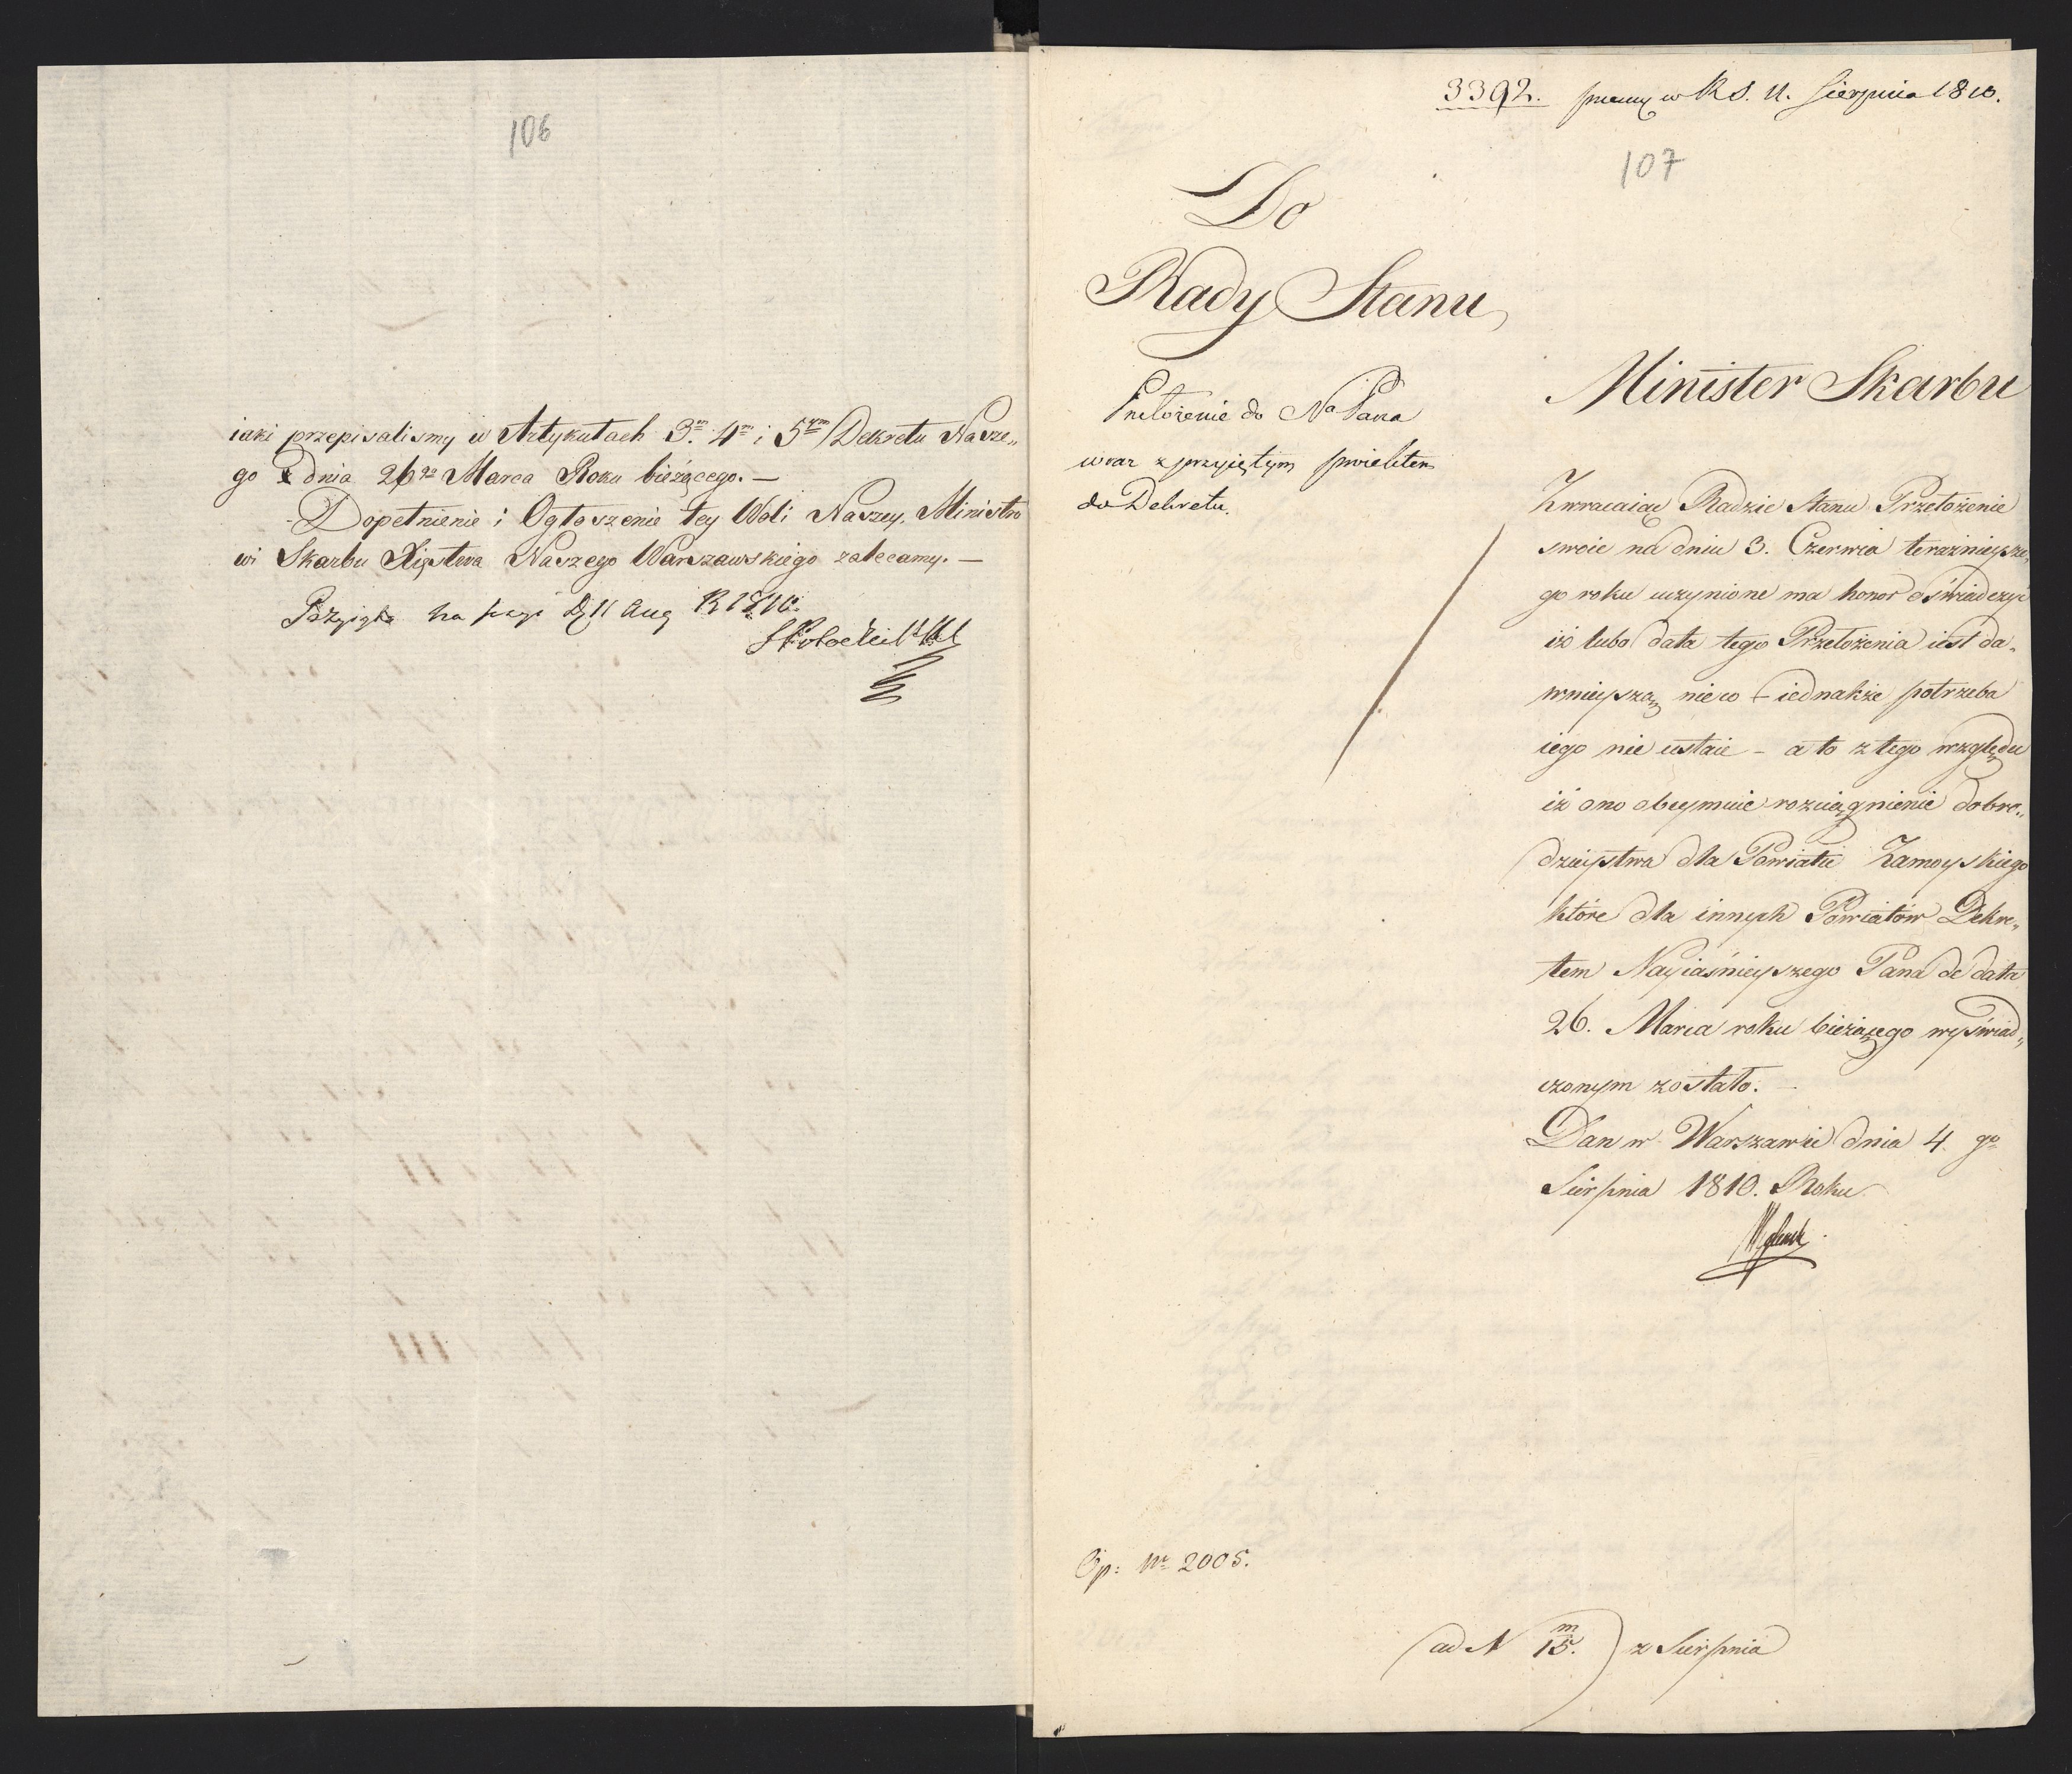 106
iaki przepisalismy w Artykułach 3.m 4m i 5tym Dekretu Nasze„
go z dnia 26go Marca Roku bieżącego. —
Dopełnienie i Ogłoszenie tey Woli Naszey, Ministro
wi Skarbu Xięstwa Naszego Warszawskiego zalecamy. —
Przyięto na sessyi D 11 Aug R 1810
3392. w R S. 11. Sierpnia 1810.
107
Do
Rady Stanu
Przełożenie do No Pana
wraz z przyiętym proiektem
do Dekretu.
Minister Skarbu
Zwracaiąc Radzie Stanu Przełożenie
swoie na dniu 3. Czerwca teraznieysze„
go roku uczynione ma honor oświadczyć
iż lubo data tego Przełożenia iest da„
wnieyszą nieco – iednakże potrzeba
iego nie ustaie – a to z tego względu
iż ono obeymuie rozciągnienie dobro„
dzieystwa dla Powiatu Zamoyskiego
które dla innych Powiatów Dekre„
tem Nayiaśnieyszego Pana de data
26. Marca roku bieżącego wyświad„
czonym zostało. —
Dan w Warszawie dnia 4 go
Sierpnia 1810. Roku
Ep: Nr 2005.
ad N 15.m z Sierpnia